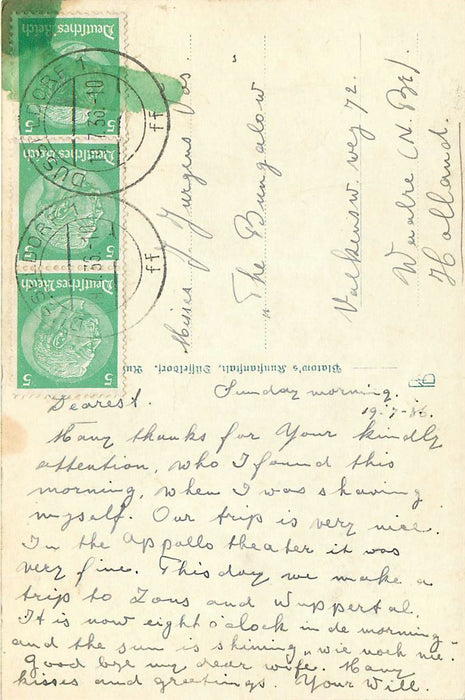 Deutsches Reich
5
Deutsches Reich
5
Deutsches Reich
5 5
DÜSSELDORF 1
ff
DÜSSELDORF 1
ff
Misses J Jurgens
"The Bungalow
Valkensw. weg 72.
Waalre (N. Br).
Holland.
Kunstanstalt, Düsseldorf.
Sunday morning.
19-7-36.
Dearest.
Many thanks for Your kindly
attention, who I found this
morning, when I was shaving
myself. Our trip is very nice.
In the Appollo theater it was
very fine. This day we make a
trip to Zons and Wuppertal.
It is now eight o'clock in de morning
and the sun is shining „wie noch nie".
Good bye my dear wife. Many
kisses and greetings. Your Will.